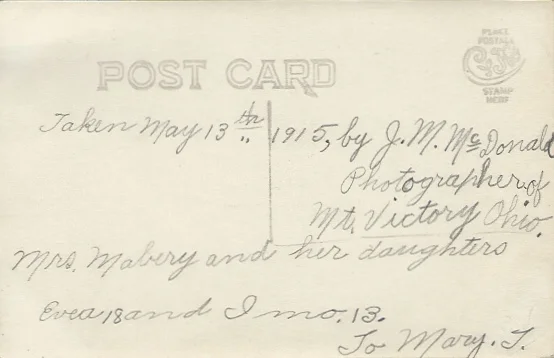 PLACE
POSTAGE
STAMP
HERE
POST CARD
Taken May 13th 1915, by J. M. McDonald
Photographer of
Mt. Victory Ohio.
Mrs. Mabery and her daughters
Evea 18 and Imo. 13.
To Mary. T.